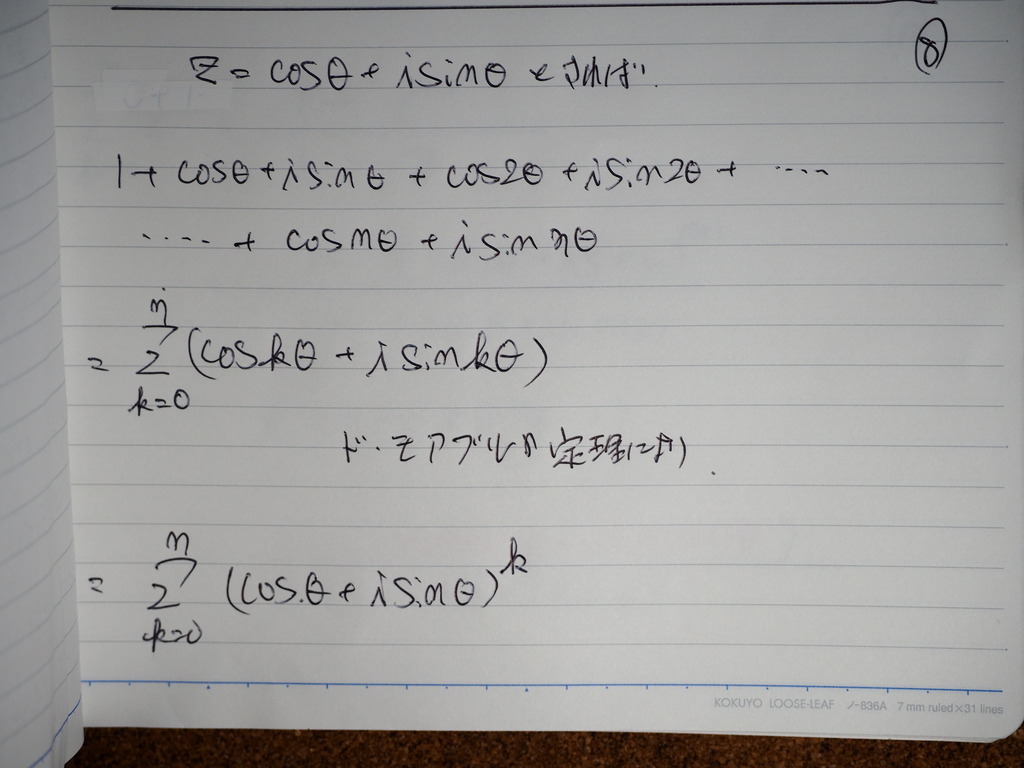 ⑧
z = cosθ + i sinθ とすれば、
1 + cosθ + i sinθ + cos2θ + i sin2θ + ‥‥
‥‥ + cos nθ + i sin nθ
= Σ_{k=0}^{n} (cos kθ + i sin kθ)
ド・モアブルの定理により
= Σ_{k=0}^{n} (cosθ + i sinθ)^k
KOKUYO LOOSE-LEAF ノ-836A 7 mm ruled×31 lines